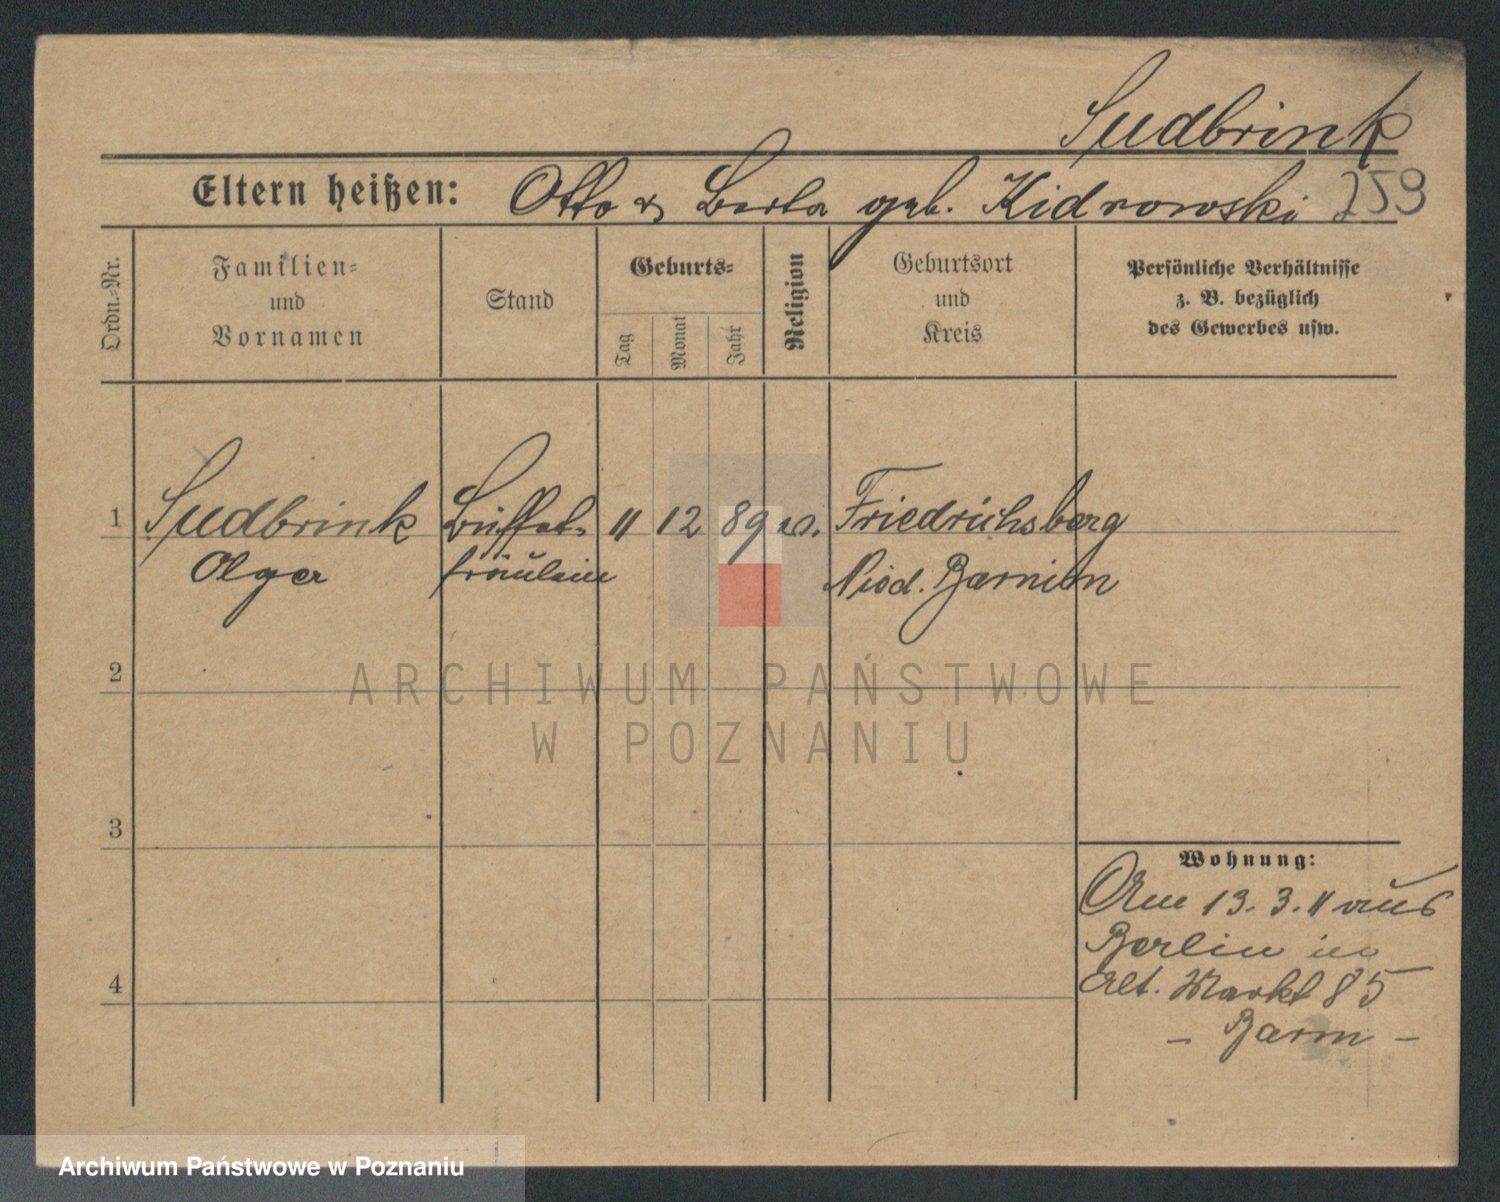 Sudbrink
Eltern heißen: Otto & Berta geb. Kidrowski 259
Ordn.-Nr.
Familien-
und
Vornamen
Stand
Geburts-
Tag
Monat
Jahr
Religion
Geburtsort
und
Kreis
Persönliche Verhältnisse
z. B. bezüglich
des Gewerbes usw.
1 Sudbrink Büffet- 11 12 89 ev. Friedrichsberg
Olga fräulein Nied. Barnim
2
ARCHIWUM PAŃSTWOWE
W POZNANIU
3
Wohnung:
Am 13. 3. 11 aus
Berlin in
4 Alt. Markt 85
- Barm -
Archiwum Państwowe w Poznaniu